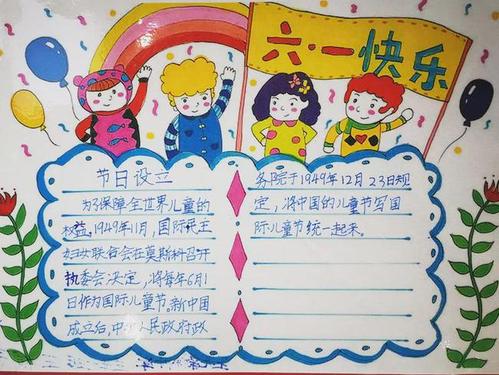 六·一快乐
节日设立
为了保障全世界儿童的
权益,1949年11月,国际民主
妇女联合会在莫斯科召开
执委会决定,将每年6月1
日作为国际儿童节,新中国
成立后,中 人民政府政
务院于1949年12月23日规
定,将中国的儿童节写国
际儿童节统一起来。